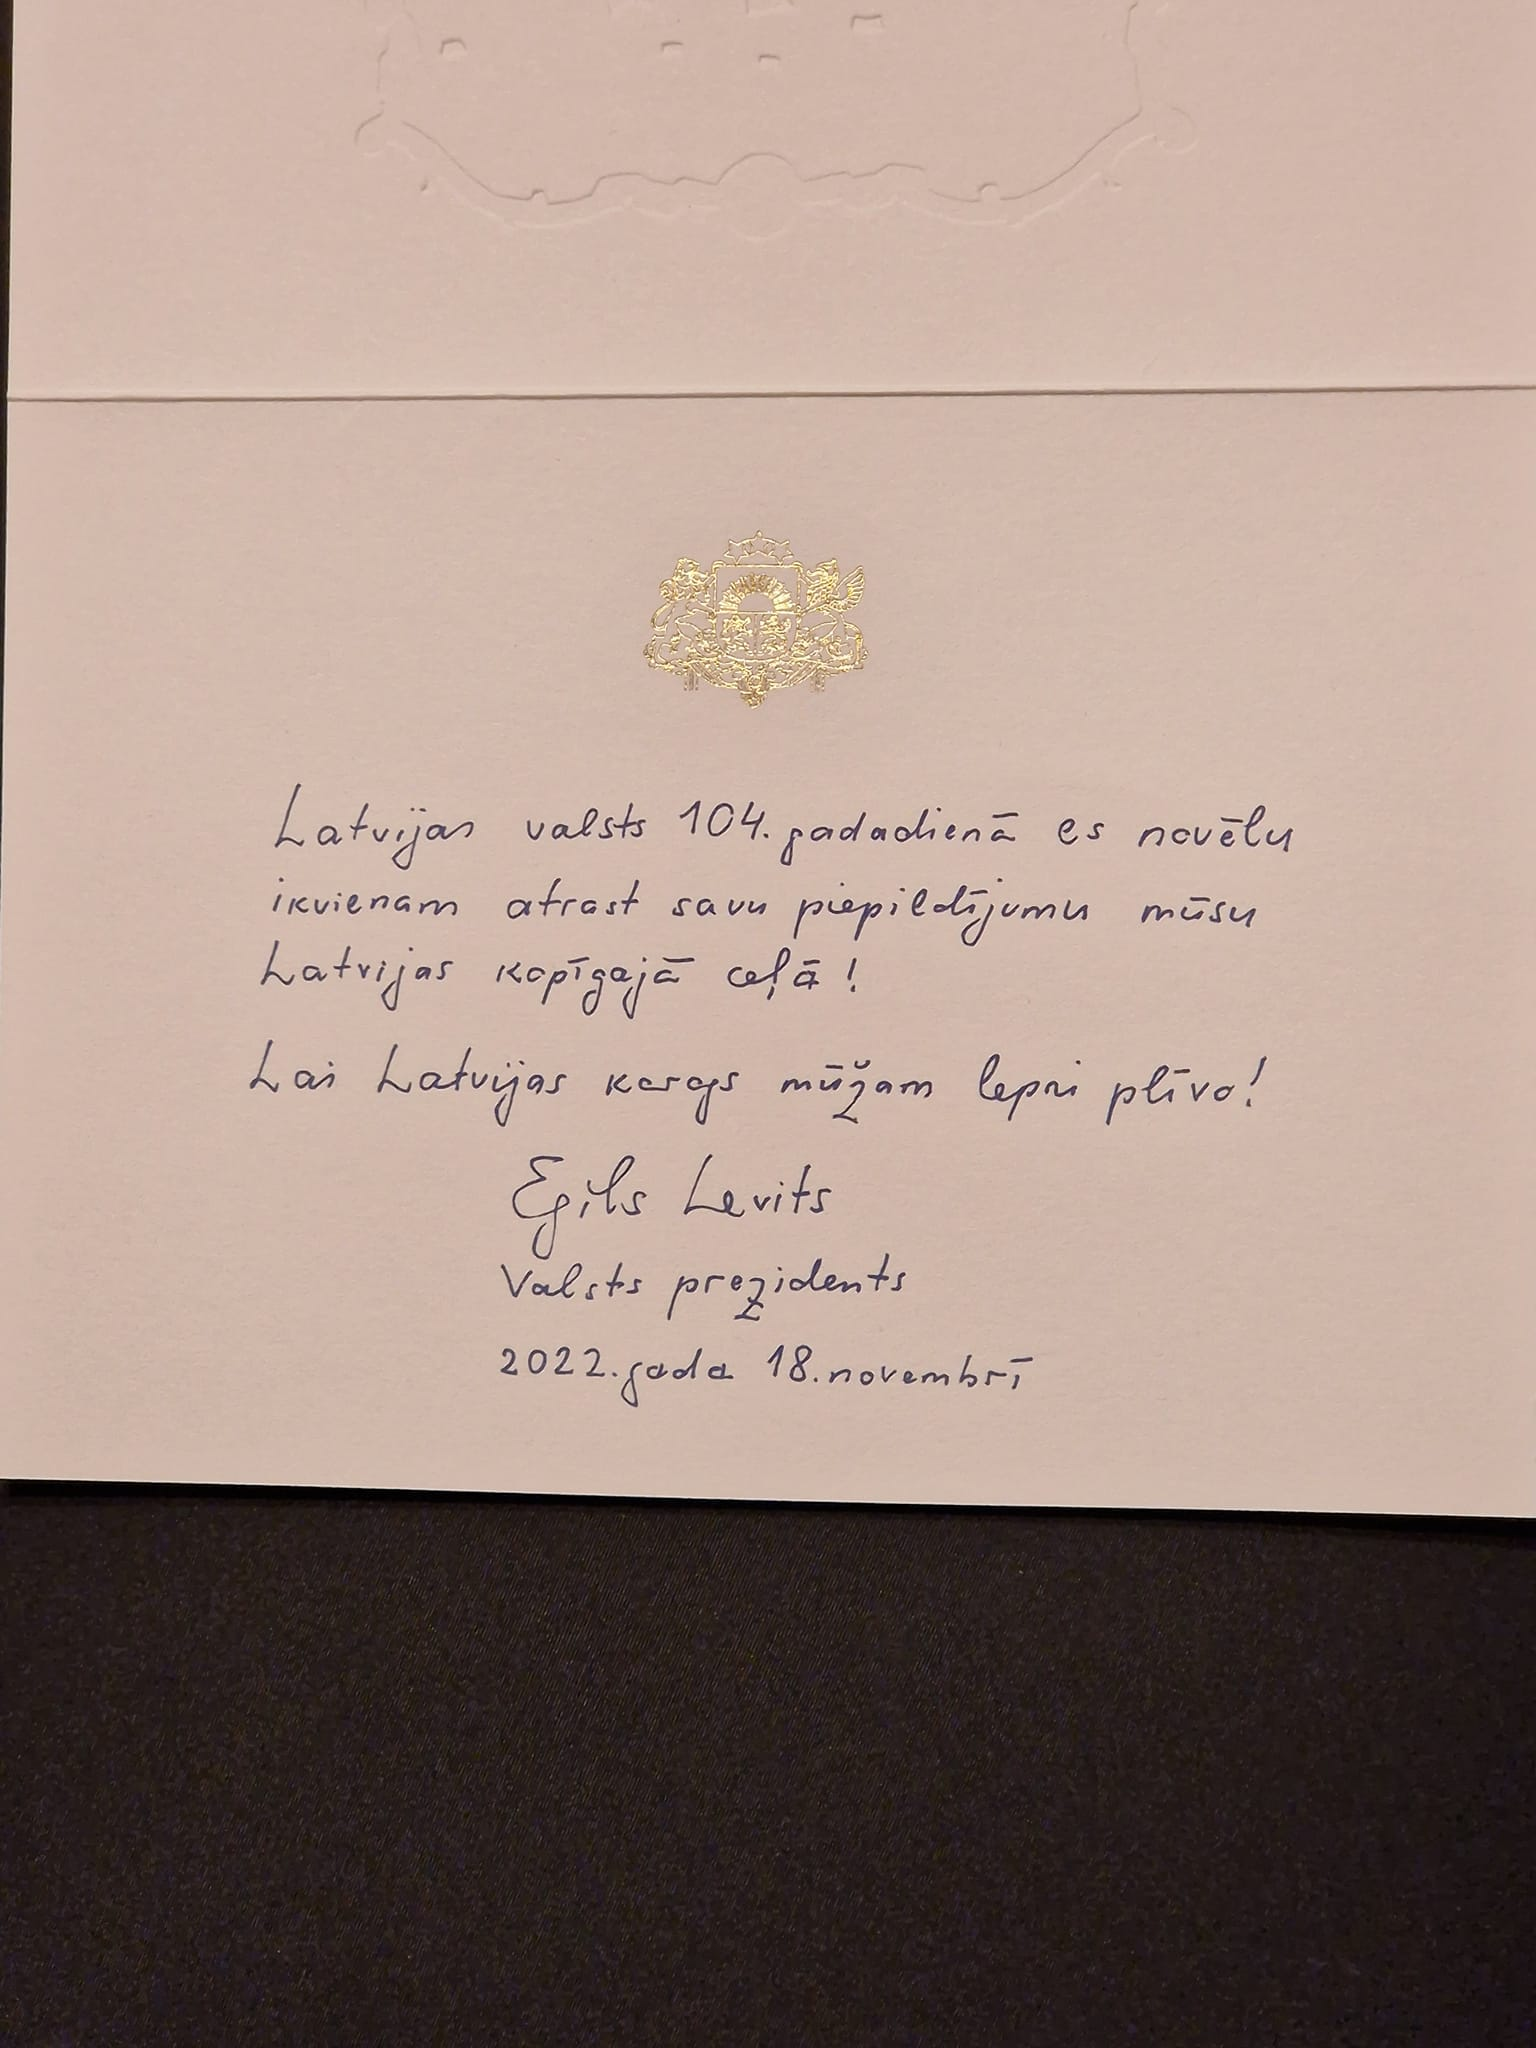 Latvijas valsts 104. gadadienā es novēlu
ikvienam atrast savu piepildījumu mūsu
Latvijas kopīgajā ceļā!
Lai Latvijas karogs mūžam lepni plīvo!
Egils Levits
Valsts prezidents
2022. gada 18. novembrī